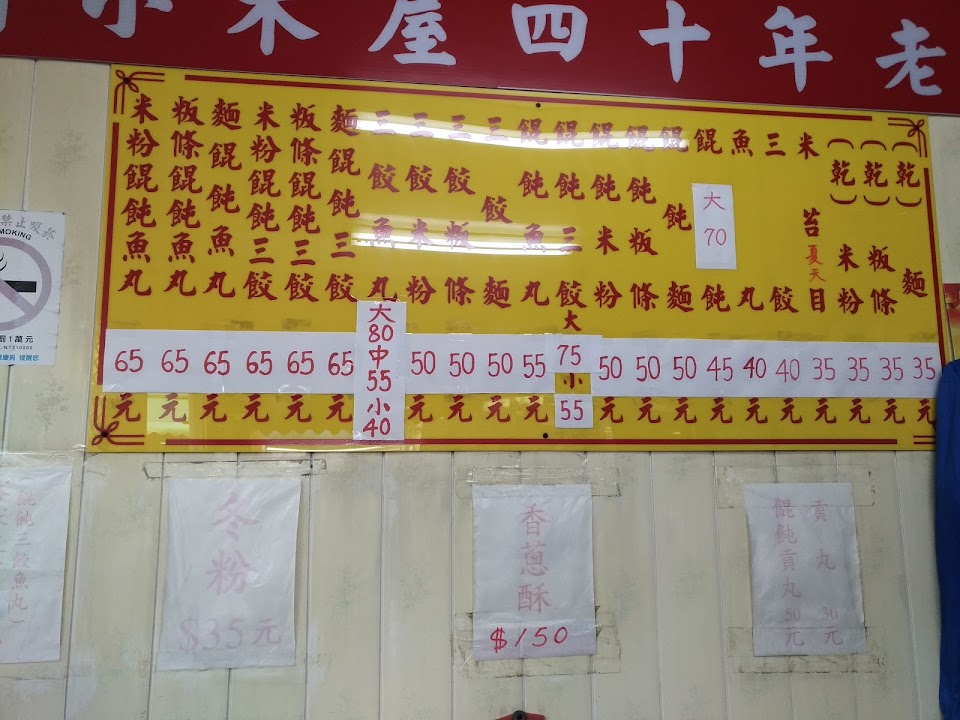 小木屋四十年老
(乾)麵 35元
(乾)粄條 35元
(乾)米粉 35元
米苔目 夏天 35元
三餃 40元
魚丸 40元
餛飩 45元
大 70
餛飩麵 50元
餛飩粄條 50元
餛飩米粉 50元
餛飩三餃 大 75 小 55
餛飩魚丸 55元
三餃麵 50元
三餃粄條 50元
三餃米粉 50元
三餃魚丸 大 80 中 55 小 40
麵餛飩三餃 65元
粄條餛飩三餃 65元
米粉餛飩三餃 65元
麵餛飩魚丸 65元
粄條餛飩魚丸 65元
米粉餛飩魚丸 65元
禁止吸菸
SMOKING
1萬元
NT$10000
提醒您
貢丸 30元
餛飩貢丸 50元
香蔥酥
$150
冬粉
$35元
餛飩三餃魚丸)